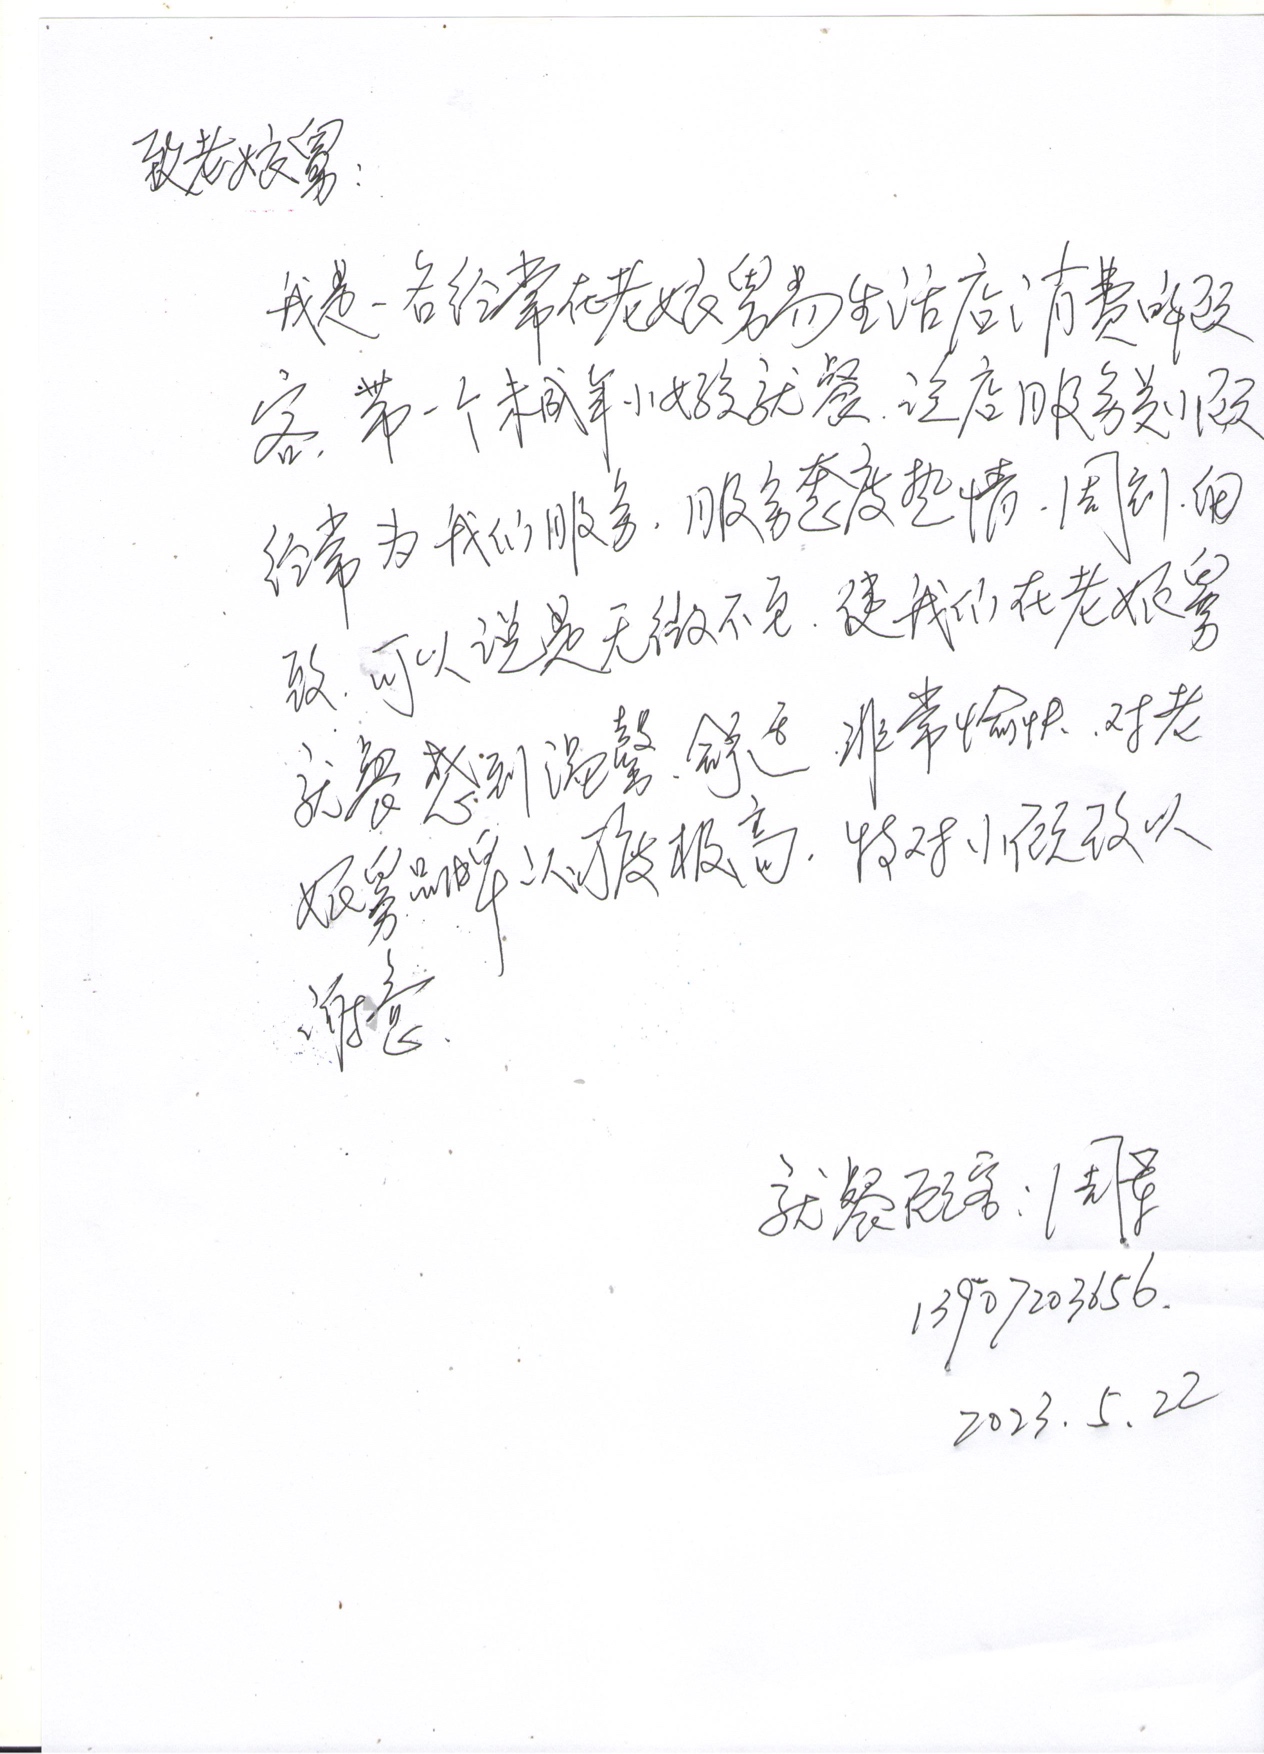 致老娘舅:
我是一名经常在老娘舅尚生活店消费的顾
客.带一个未成年小女孩就餐.该店服务员小顾
经常为我们服务.服务态度热情.周到.细
致.可以说是无微不至.使我们在老娘舅
就餐感到温馨.舒适.非常愉快.对老
娘舅品牌认可度极高.特对小顾致以
谢意.
就餐顾客:周
13907203656.
2023.5.22